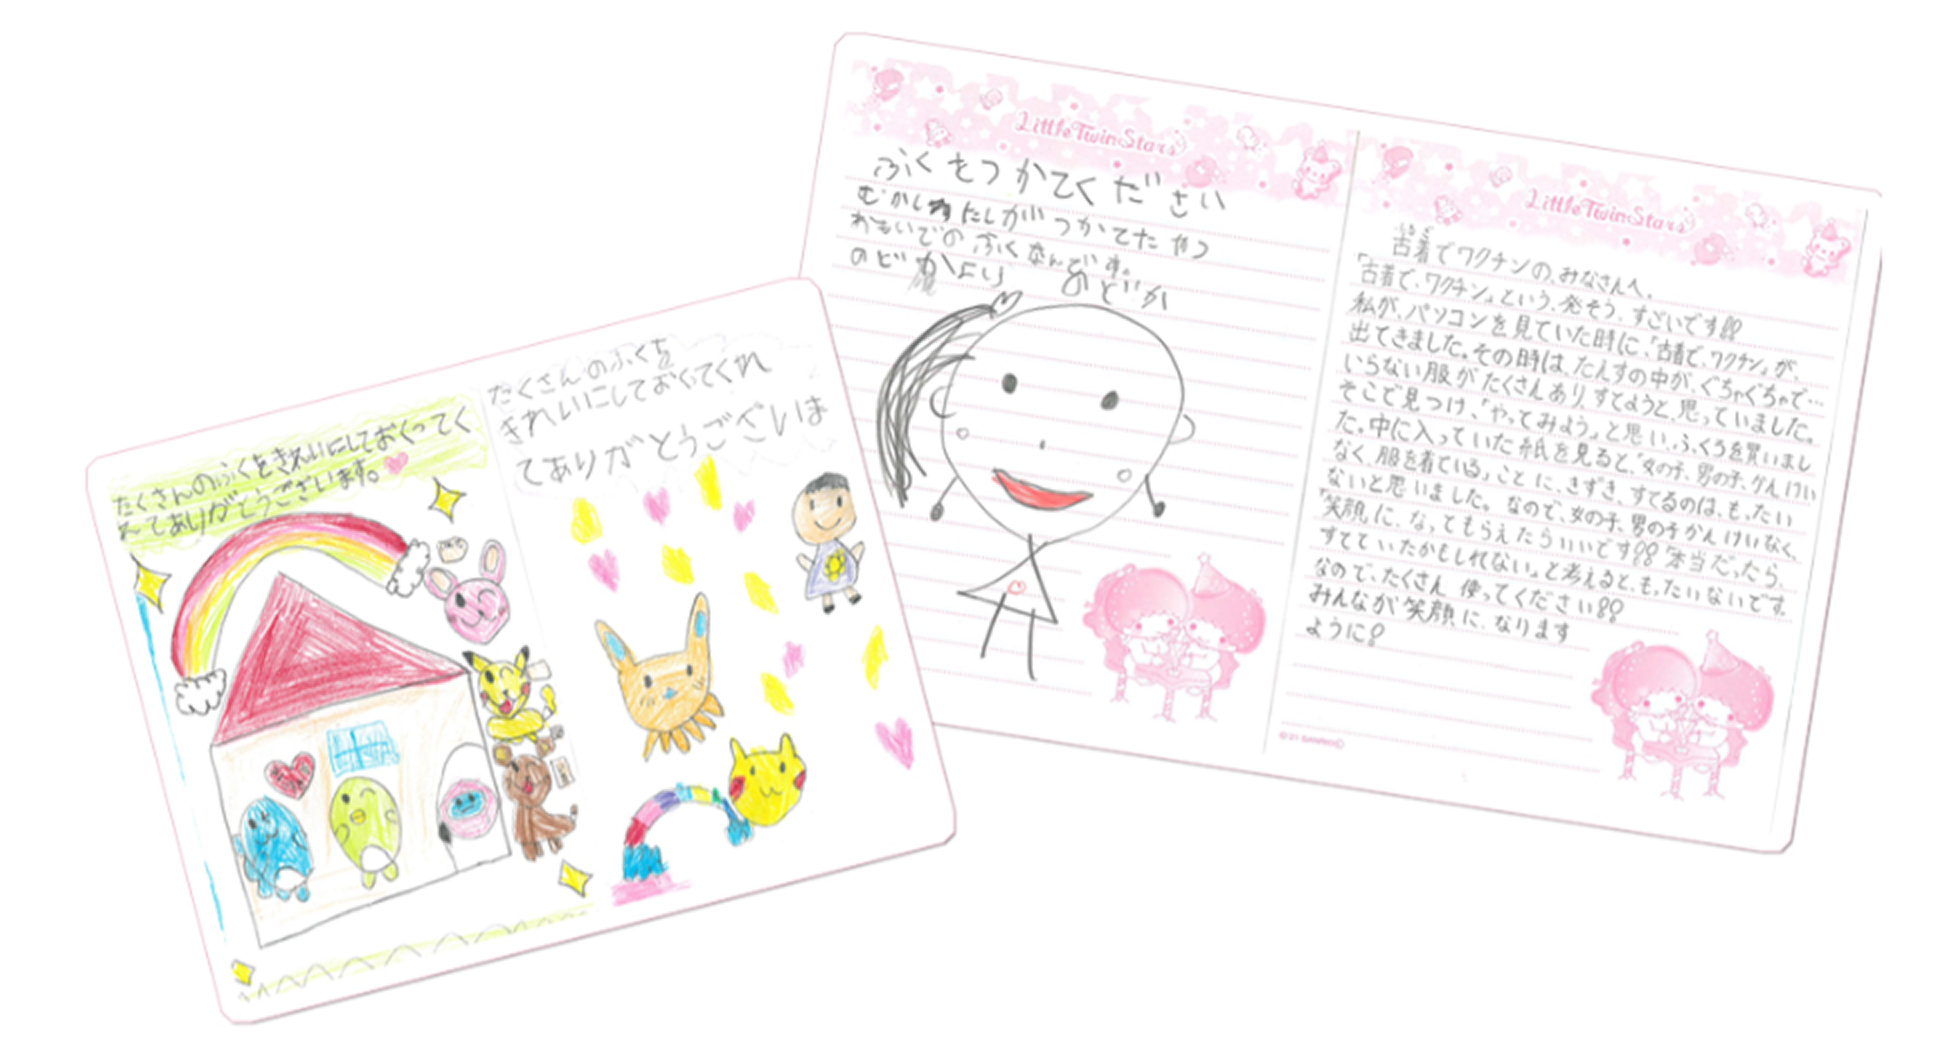 たくさんのふくをきれいにしておくってく
れてありがとうございます。
たくさんのふくを
きれいにしておくってくれ
てありがとうございま
LittleTwinStars
ふくをつかてください
むかしわたしがつかてたやつ
おもいでのふくなんです。
のどかより
のどか
LittleTwinStars
ふるぎ
古着でワクチンの、みなさんへ。
「古着で、ワクチン」という、発そう、すごいです!!
私が、パソコンを見ていた時に、「古着で、ワクチン」が、
出てきました。その時は、たんすの中が、ぐちゃぐちゃで…
いらない服がたくさんあり、すてようと、思っていました。
そこで見つけ、「やってみよう」と思い、ふくろを買いまし
た。中に入っていた紙を見ると、「女の子、男の子、かんけい
なく、服を着ている」ことに、きずき、すてるのは、もったい
ないと思いました。なので、女の子、男の子かんけいなく、
「笑顔」に、なってもらえたらいいです!!本当だったら、
すてていたかもしれない」と考えると、もったいないです。
なので、たくさん使ってください!!
みんなが笑顔に、なります
ように!